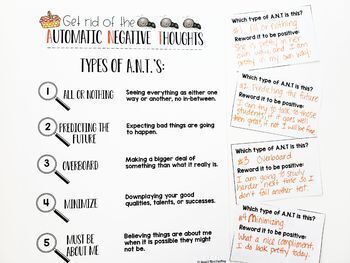 Get rid of the
AUTOMATIC NEGATIVE THOUGHTS
TYPES OF A.N.T.'S:
1 ALL OR NOTHING
Seeing everything as either one
way or another, no in-between.
2 PREDICTING THE
FUTURE
Expecting bad things are going
to happen.
3 OVERBOARD
Making a bigger deal of
something than what it really is.
4 MINIMIZE
Downplaying your good
qualities, talents, or successes.
5 MUST BE
ABOUT ME
Believing things are about me
when it is possible they might
not be.
Which type of A.N.T is this?
#1 All or nothing
Reword it to be positive:
is pretty in her
own way, and I am
pretty in my own way.
Which type of A.N.T is this?
#2 Predicting the future
Reword it to be positive:
I can try to talk to those
students; if it goes well
then great, if not I will be fine
Which type of A.N.T is this?
#3 Overboard
Reword it to be positive:
I am going to study
harder next time so I
don't fail another test.
Which type of A.N.T is this?
#4 Minimizing
Reword it to be positive:
What a nice compliment,
I do look pretty today.